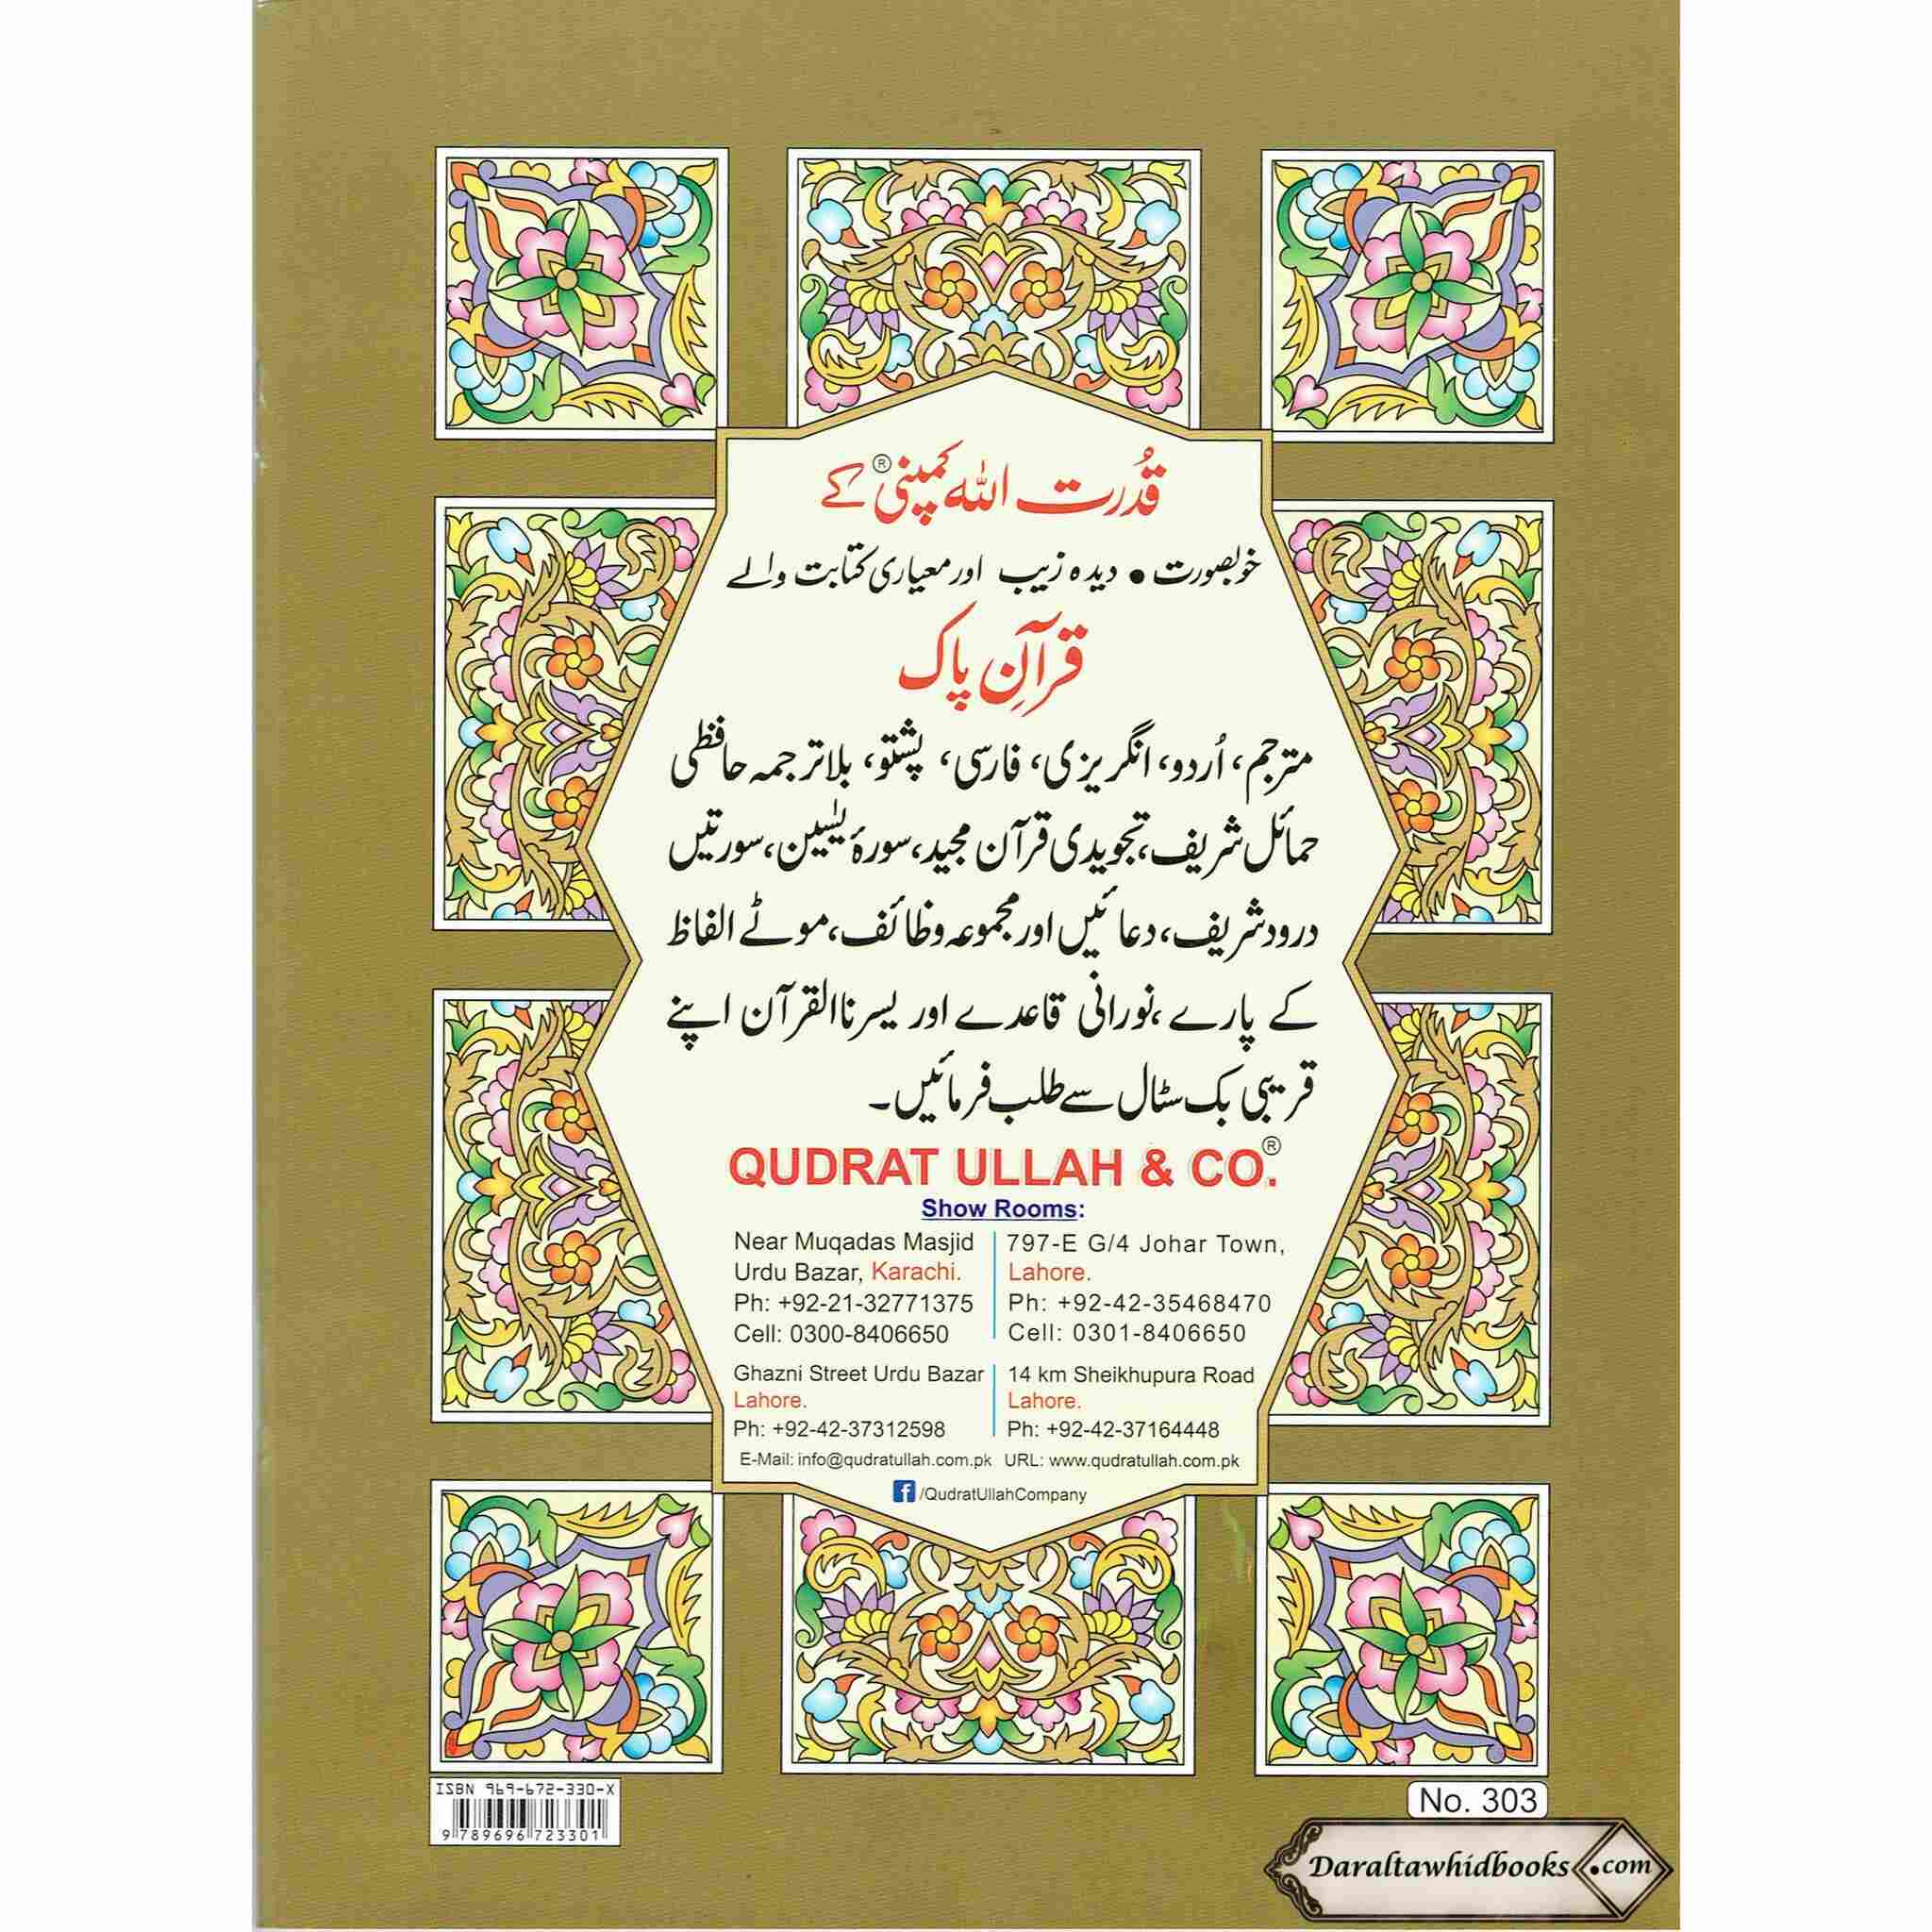 قُدرت اللہ کمپنی® کے
خوبصورت • دیدہ زیب اور معیاری کتابت والے
قرآنِ پاک
مترجم، اُردو، انگریزی، فارسی، پشتو، بلاترجمہ حافظی
حمائل شریف، تجویدی قرآن مجید، سورۂ یٰسین، سورتیں
درود شریف، دعائیں اور مجموعہ وظائف، موٹے الفاظ
کے پارے، نورانی قاعدے اور یسرنا القرآن اپنے
قریبی بک سٹال سے طلب فرمائیں۔
QUDRAT ULLAH & CO.®
Show Rooms:
Near Muqadas Masjid
Urdu Bazar, Karachi.
Ph: +92-21-32771375
Cell: 0300-8406650
797-E G/4 Johar Town,
Lahore.
Ph: +92-42-35468470
Cell: 0301-8406650
Ghazni Street Urdu Bazar
Lahore.
Ph: +92-42-37312598
14 km Sheikhupura Road
Lahore.
Ph: +92-42-37164448
E-Mail: info@qudratullah.com.pk URL: www.qudratullah.com.pk
f /QudratUllahCompany
ISBN 969-672-330-X
9 789696 723301
No. 303
Daraltawhidbooks.com